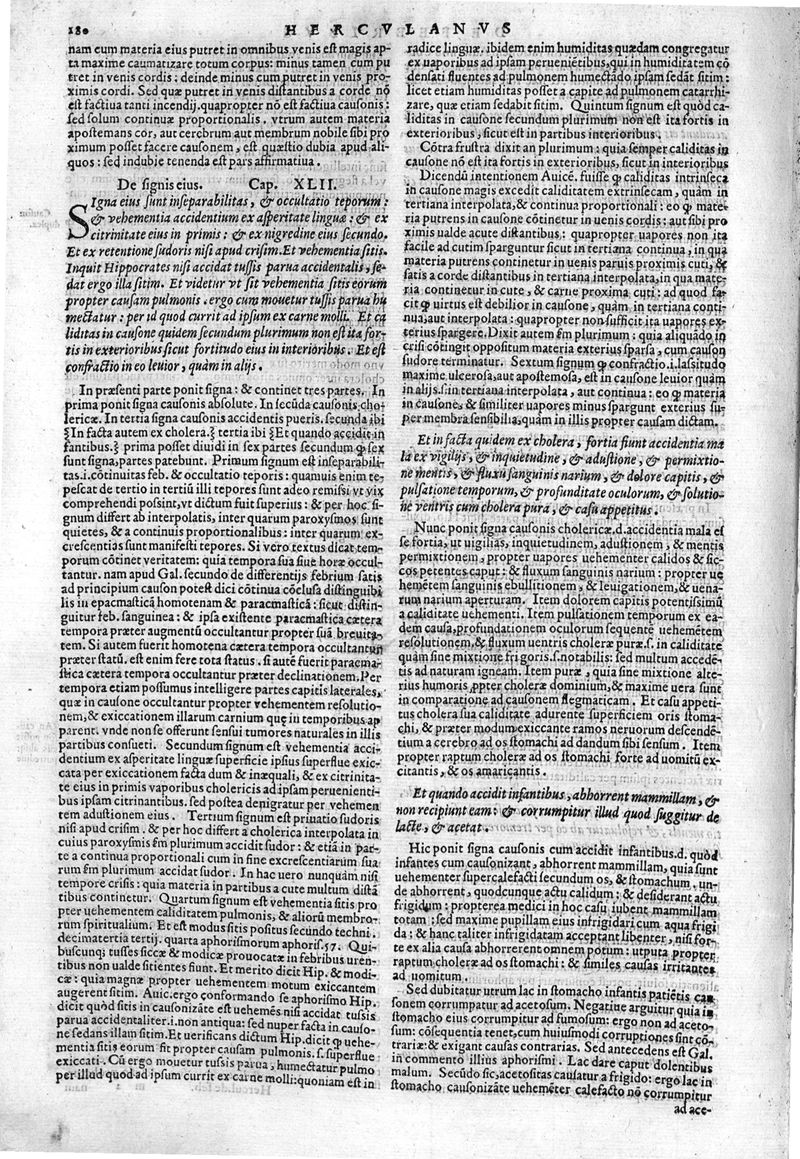 180
HERCVLANVS
nam eum materia eius putret in omnibus venis est magis ap-
ta maxime caumatizare totum corpus: minus tamen cum pu
tret in venis cordis: deinde minus cum putret in venis pro-
ximis cordi. Sed quæ putret in venis distantibus a corde nō
est factiua tanti incendij. quapropter nō est factiua causonis:
sed solum continuæ proportionalis. vtrum autem materia
apostemans cor, aut cerebrum aut membrum nobile sibi pro
ximum posset facere causonem, est quæstio dubia apud ali-
quos: sed indubie tenenda est pars affirmatiua.
De signis eius. Cap. XLII.
SIgna eius sunt inseparabilitas, & occultatio teporum:
& vehementia accidentium ex asperitate linguæ: & ex
citrinitate eius in primis: & ex nigredine eius secundo.
Et ex retentione sudoris nisi apud crisim. Et vehementia sitis.
Inquit Hippocrates nisi accidat tussis parua accidentalis, se-
dat ergo illa sitim. Et videtur vt sit vehementia sitis eorum
propter causam pulmonis. ergo cum mouetur tussis parua hu
mectatur: per id quod currit ad ipsum ex carne molli. Et ca
liditas in causone quidem secundum plurimum non est ita for-
tis in exterioribus sicut fortitudo eius in interioribus. Et est
confractio in eo leuior, quàm in alijs.
In præsenti parte ponit signa: & continet tres partes. In
prima ponit signa causonis absolute. In secūda causonis cho-
lericæ. In tertia signa causonis accidentis pueris. secunda ibi
§In facta autem ex cholera.§ tertia ibi §Et quando accidit in
fantibus.§ prima posset diuidi in sex partes secundum ꝙ sex
sunt signa, partes patebunt. Primum signum est inseparabili-
tas.i. cōtinuitas feb. & occultatio teporis: quamuis enim te-
pescat de tertio in tertiū illi tepores sunt adeo remissi vt vix
comprehendi possint, vt dictum fuit superius: & per hoc si-
gnum differt ab interpolatis, inter quarum paroxysmos sunt
quietes, & a continuis proportionalibus: inter quarum ex-
crescentias sunt manifesti tepores. Si vero textus dicat tem-
porum cōtinet veritatem: quia tempora sua siue horæ occul-
tantur. nam apud Gal. secundo de differentijs febrium satis
ad principium causon potest dici cōtinua cōclusa distinguibi
lis in epacmasticā homotenam & paracmasticā: sicut distin-
guitur feb. sanguinea: & ipsa existente paracmastica cætera
tempora præter augmentū occultantur propter suā breuita-
tem. Si autem fuerit homotena cætera tempora occultantur
præter statū. est enim fere tota status. si autē fuerit paracma-
stica cætera tempora occultantur præter declinationem. Per
tempora etiam possumus intelligere partes capitis laterales,
quæ in causone occultantur propter vehementem resolutio-
nem, & exiccationem illarum carnium quę in temporibus ap
parent. vnde non se offerunt sensui tumores naturales in illis
partibus consueti. Secundum signum est vehementia acci-
dentium ex asperitate linguæ superficie ipsius superflue exic-
cata per exiccationem facta dum & inæquali, & ex citrinita-
te eius in primis vaporibus cholericis ad ipsam peruenienti-
bus ipsam citrinantibus. sed postea denigratur per vehemen
tem adustionem eius. Tertium signum est priuatio sudoris
nisi apud crisim. & per hoc differt a cholerica interpolata in
cuius paroxysmis fm plurimum accidit sudor: & etiā in par-
te a continua proportionali cum in fine excrescentiarum sua
rum fm plurimum accidat sudor. In hac uero nunquām nisi
tempore crisis: quia materia in partibus a cute multum distā
tibus continetur. Quartum signum est vehementia sitis pro
pter uehementem caliditatem pulmonis, & aliorū membro-
rum spiritualium. Et est modus sitis positus secundo techni.
decimatertia tertij. quarta aphorismorum aphoris.57. Qui-
buscunq; tusses siccæ & modicæ prouocatæ in febribus uren-
tibus non ualde sitientes fiunt. Et merito dicit Hip. & modi-
cæ: quia magnæ propter uehementem motum exiccantem
augerent sitim. Auic. ergo conformando se aphorismo Hip.
dicit quòd sitis in causonizāte est uehemēs nisi accidat tussis
parua accidentaliter.i. non antiqua: sed nuper facta in causo-
ne sedans illam sitim. Et uerificans dictum Hip. dicit ꝙ uehe-
mentia sitis eorum fit propter causam pulmonis.s. superflue
exiccati. Cū ergo mouetur tussis parua, humectatur pulmo
per illud quod ad ipsum currit ex carne molli: quoniam est in
radice linguæ. ibidem enim humiditas quædam congregatur
ex uaporibus ad ipsam perueniētibus, qui in humiditatem cō
densati fluentes ad pulmonem humectādo ipsam sedāt sitim:
licet etiam humiditas posset a capite ad pulmonem catarrhi-
zare, quæ etiam sedabit sitim. Quintum signum est quòd ca-
liditas in causone secundum plurimum non est ita fortis in
exterioribus, sicut est in partibus interioribus.
Cōtra frustra dixit an plurimum: quia semper caliditas in
causone nō est ita fortis in exterioribus, sicut in interioribus
Dicendū intentionem Auicē. fuisse ꝙ caliditas intrinseca
in causone magis excedit caliditatem extrinsecam, quàm in
tertiana interpolata, & continua proportionali: eo ꝙ mate-
ria putrens in causone cōtinetur in uenis cordis: aut sibi pro
ximis ualde acute distantibus: quapropter uapores non ita
facile ad cutim sparguntur sicut in tertiana continua, in qua
materia putrens continetur in uenis paruis proximis cuti, &
satis a corde distantibus in tertiana interpolata, in qua mate-
ria continetur in cute, & carne proxima cuti: ad quod fa-
cit ꝙ uirtus est debilior in causone, quàm in tertiana conti-
nua, aut interpolata: quapropter non sufficit ita uapores ex-
terius spargere. Dixit autem fm plurimum: quia aliquādo in
crisi cōtingit oppositum materia exterius sparsa, cum causon
sudore terminatur. Sextum signum ꝙ confractio.i. lassitudo
maxime ulcerosa, aut apostemosa, est in causone leuior quàm
in alijs.s. in tertiana interpolata, aut continua: eo ꝙ materia
in causone, & similiter uapores minus spargunt exterius su-
per membra sensibilia, quàm in illis propter causam dictam.
Et in facta quidem ex cholera, fortia fiunt accidentia ma
la ex vigilijs, & inquietudine, & adustione, & permixtio-
ne mentis, & fluxū sanguinis narium, & dolore capitis, &
pulsatione temporum, & profunditate oculorum, & solutio-
ne ventris cum cholera pura, & casu appetitus.
Nunc ponit signa causonis cholericæ.d. accidentia mala es
se fortia, ut uigilias, inquietudinem, adustionem, & mentis
permixtionem, propter uapores uehementer calidos & sic-
cos petentes caput: & fluxum sanguinis narium: propter ue
hemētem sanguinis ebullitionem, & leuigationem, & uena-
rum narium aperturam. Item dolorem capitis potentissimū
a caliditate uehementi. Item pulsationem temporum ex ea-
dem causa, profundationem oculorum sequentē uehemētem
resolutionem, & fluxum uentris choleræ puræ.s. in caliditate
quàm sine mixtione frigoris.s. notabilis: sed multum accedē-
tis ad naturam igneam. Item puræ, quia sine mixtione alte-
rius humoris ꝓpter choleræ dominium, & maxime uera sunt
in comparatione ad causonem flegmaticam. Et casu appeti-
tus cholera sua caliditate adurente superficiem oris stoma-
chi, & præter modum exiccante ramos neruorum descendē-
tium a cerebro ad os stomachi ad dandum sibi sensum. Item
propter raptum choleræ ad os stomachi forte ad uomitū ex-
citantis, & os amaricantis.
Et quando accidit infantibus, abhorrent mammillam, &
non recipiunt eam: & corrumpitur illud quod suggitur de
lacte, & acetat.
Hic ponit signa causonis cum accidit infantibus.d. quòd
infantes cum causonizant, abhorrent mammillam, quia sunt
uehementer supercalefacti secundum os, & stomachum, un-
de abhorrent, quodcunque actu calidum: & desiderant actu
frigidum: propterea medici in hoc casu iubent mammillam
totam: sed maxime pupillam eius infrigidari cum aqua frigi
da: & hanc taliter infrigidatam acceptant libenter, nisi for-
te ex alia causa abhorrerent omnem potum: utputa propter
raptum choleræ ad os stomachi: & similes causas irritantes
ad uomitum.
Sed dubitatur utrum lac in stomacho infantis patiētis cau
sonem corrumpatur ad acetosum. Negatiue arguitur quia in
stomacho eius corrumpitur ad fumosum: ergo non ad aceto-
sum: cōsequentia tenet, cum huiusmodi corruptiones sint cō-
trariæ: & exigant causas contrarias. Sed antecedens est Gal.
in commento illius aphorismi. Lac dare caput dolentibus
malum. Secūdo sic, acetositas causatur a frigido: ergo lac in
stomacho causonizāte uehemēter calefacto nō corrumpitur
ad ace-